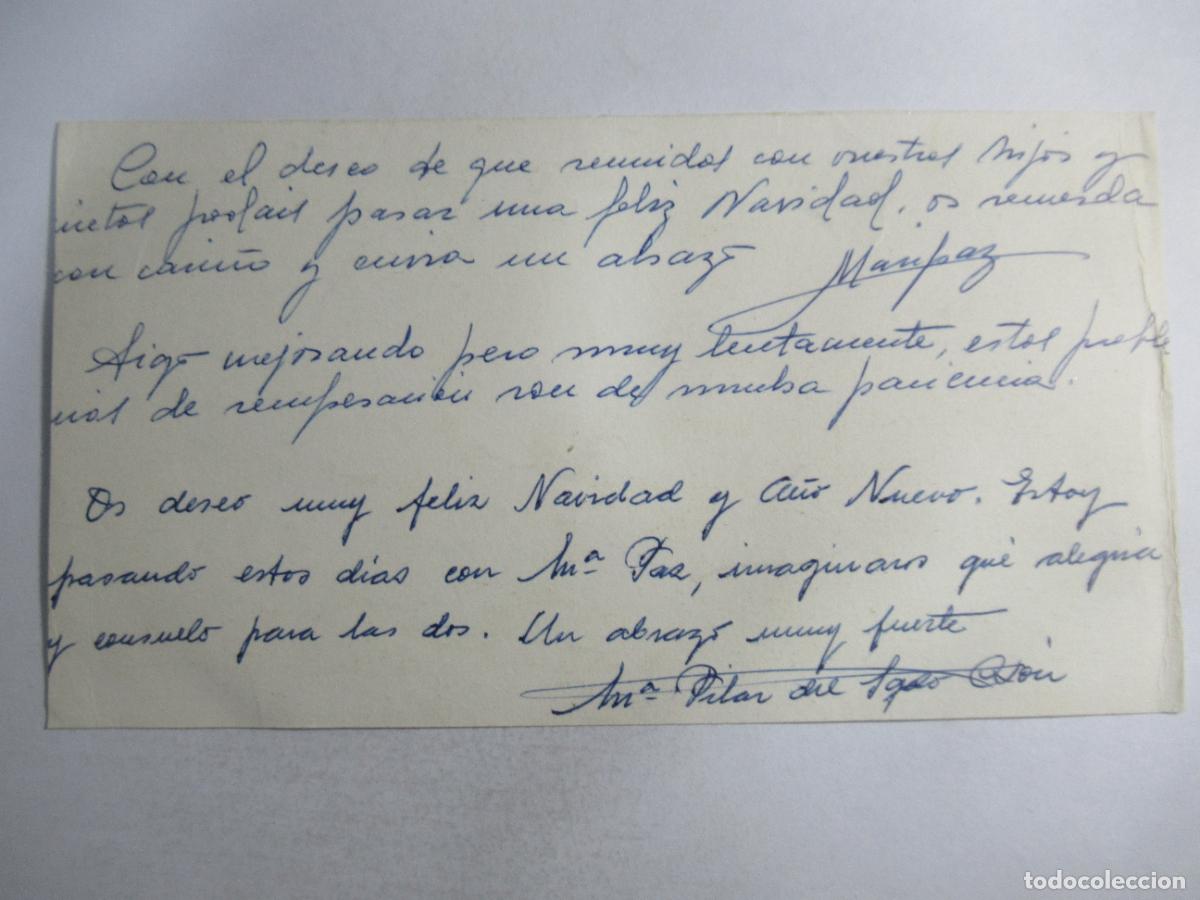 Con el deseo de que reunidos con vuestros hijos y
nietos podais pasar una feliz Navidad, os recuerda
con cariño y envia un abrazo Maripaz
Sigo mejorando pero muy lentamente, estos proble
mas de recuperación son de mucha paciencia.
Os deseo muy feliz Navidad y Año Nuevo. Estoy
pasando estos días con Mª Paz, imaginaros qué alegria
y consuelo para las dos. Un abrazo muy fuerte
Mª Pilar del Sgdo
todocoleccion